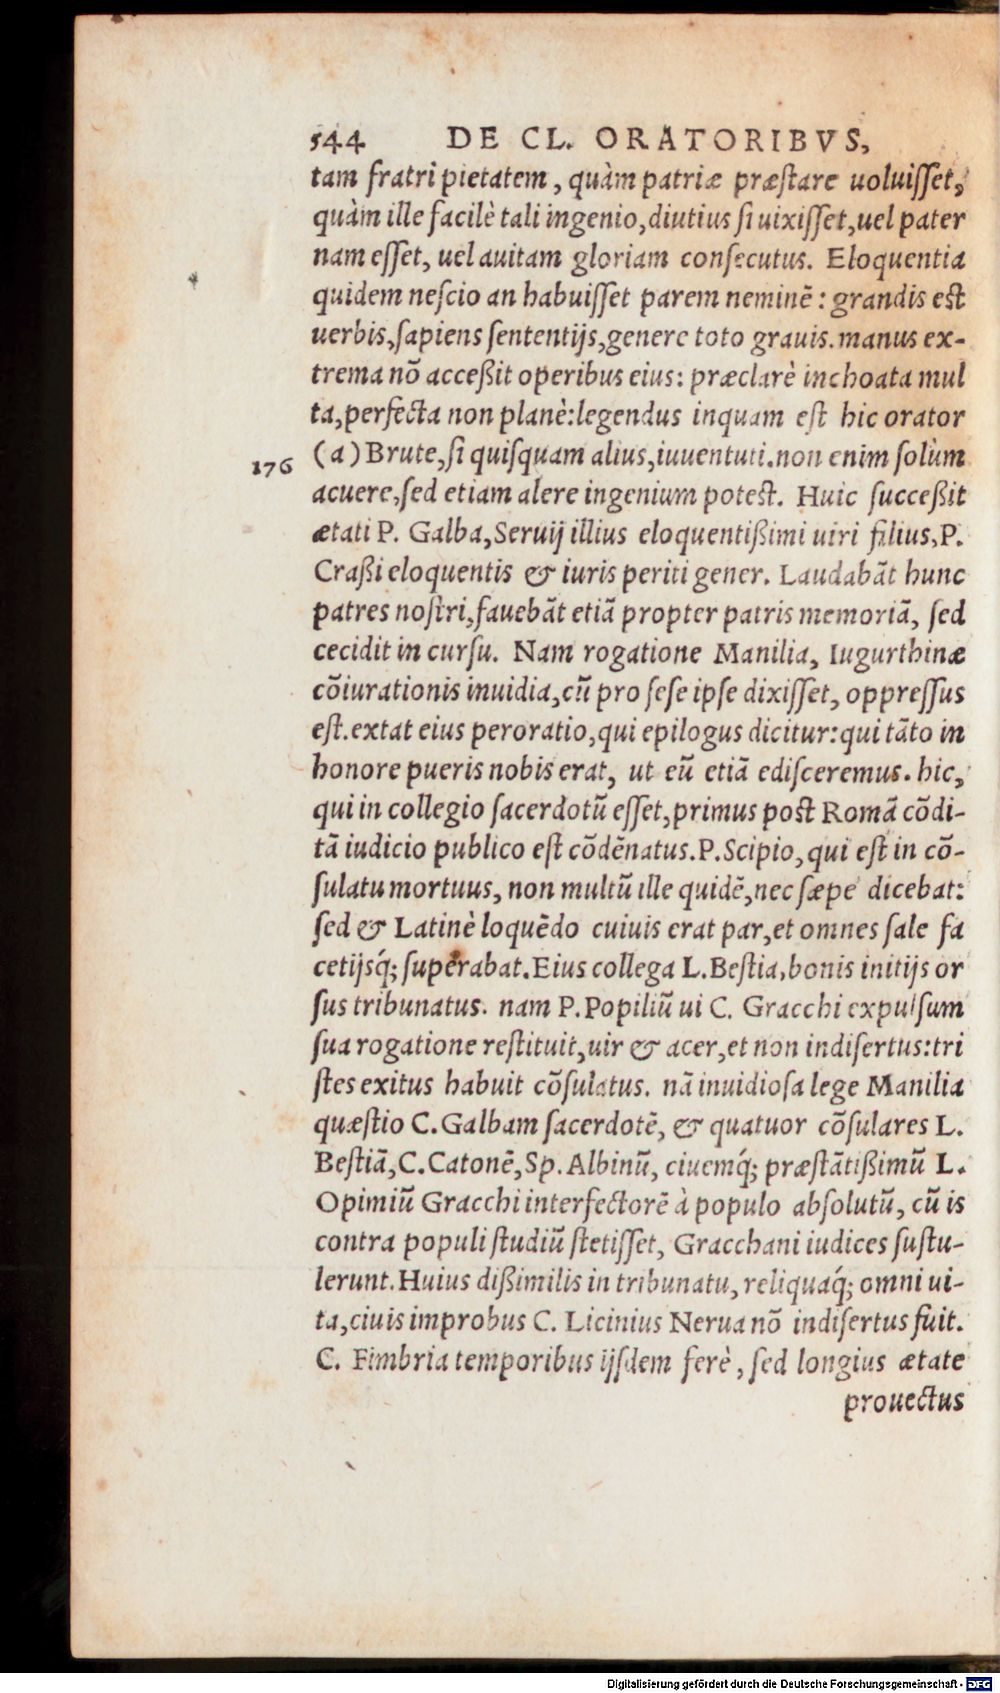 544 DE CL. ORATORIBVS,
tam fratri pietatem, quàm patriæ præstare uoluisset,
quàm ille facilè tali ingenio, diutius si uixisset, uel pater
nam esset, uel auitam gloriam consecutus. Eloquentia
quidem nescio an habuisset parem neminẽ: grandis est
uerbis, sapiens sententijs, genere toto grauis. manus ex-
trema nõ acceßit operibus eius: præclarè inchoata mul
ta, perfecta non planè: legendus inquam est hic orator
176 (a) Brute, si quisquam alius, iuuentuti. non enim solùm
acuere, sed etiam alere ingenium potest. Huic succeßit
ætati P. Galba, Seruij illius eloquentißimi uiri filius, P.
Craßi eloquentis & iuris periti gener. Laudabãt hunc
patres nostri, fauebãt etiã propter patris memoriã, sed
cecidit in cursu. Nam rogatione Manilia, Iugurthinæ
cõiurationis inuidia, cũ pro sese ipse dixisset, oppressus
est. extat eius peroratio, qui epilogus dicitur: qui tãto in
honore pueris nobis erat, ut eũ etiã edisceremus. hic,
qui in collegio sacerdotũ esset, primus post Romã cõdi-
tã iudicio publico est cõdẽnatus. P. Scipio, qui est in cõ-
sulatu mortuus, non multũ ille quidẽ, nec sæpe dicebat:
sed & Latinè loquẽdo cuiuis erat par, et omnes sale fa
cetijsq́; superabat. Eius collega L. Bestia, bonis initijs or
sus tribunatus. nam P. Popiliũ ui C. Gracchi expulsum
sua rogatione restituit, uir & acer, et non indisertus: tri
stes exitus habuit cõsulatus. nã inuidiosa lege Manilia
quæstio C. Galbam sacerdotẽ, & quatuor cõsulares L.
Bestiã, C. Catonẽ, Sp. Albinũ, ciuemq́; præstãtißimũ L.
Opimiũ Gracchi interfectorẽ à populo absolutũ, cũ is
contra populi studiũ stetisset, Gracchani iudices sustu-
lerunt. Huius dißimilis in tribunatu, reliquaq́; omni ui-
ta, ciuis improbus C. Licinius Nerua nõ indisertus fuit.
C. Fimbria temporibus ijsdem ferè, sed longius ætate
prouectus
Digitalisierung gefördert durch die Deutsche Forschungsgemeinschaft - DFG